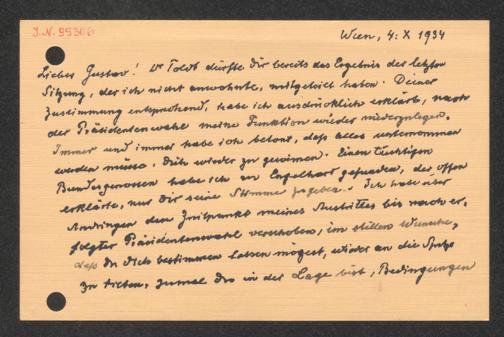 I.N. 99306
Wien, 4. X 1934
Lieber Gustav! Dr Toldt dürfte Dir bereits das Ergebnis der letzten
Sitzung, der ich nicht anwohnte, mitgeteilt haben. Deiner
Zustimmung entsprechend, habe ich ausdrücklich erklärt, nach
der Präsidentenwahl meine Funktion wieder niederzulegen.
Immer und immer habe ich betont, daß alles unternommen
werden müsse, Dich wieder zu gewinnen. Einen tüchtigen
Bundesgenossen habe ich an Engelhart gefunden, der offen
erklärte, nur Dir seine Stimme zu geben. Ich habe über
Andringen den Zeitpunkt meines Austrittes bis nach er-
folgter Präsidentenwahl verschoben, im stillen Wunsche,
daß Du Dich bestimmen lassen mögest, wieder an die Spitze
zu treten, zumal Du in der Lage bist, Bedingungen